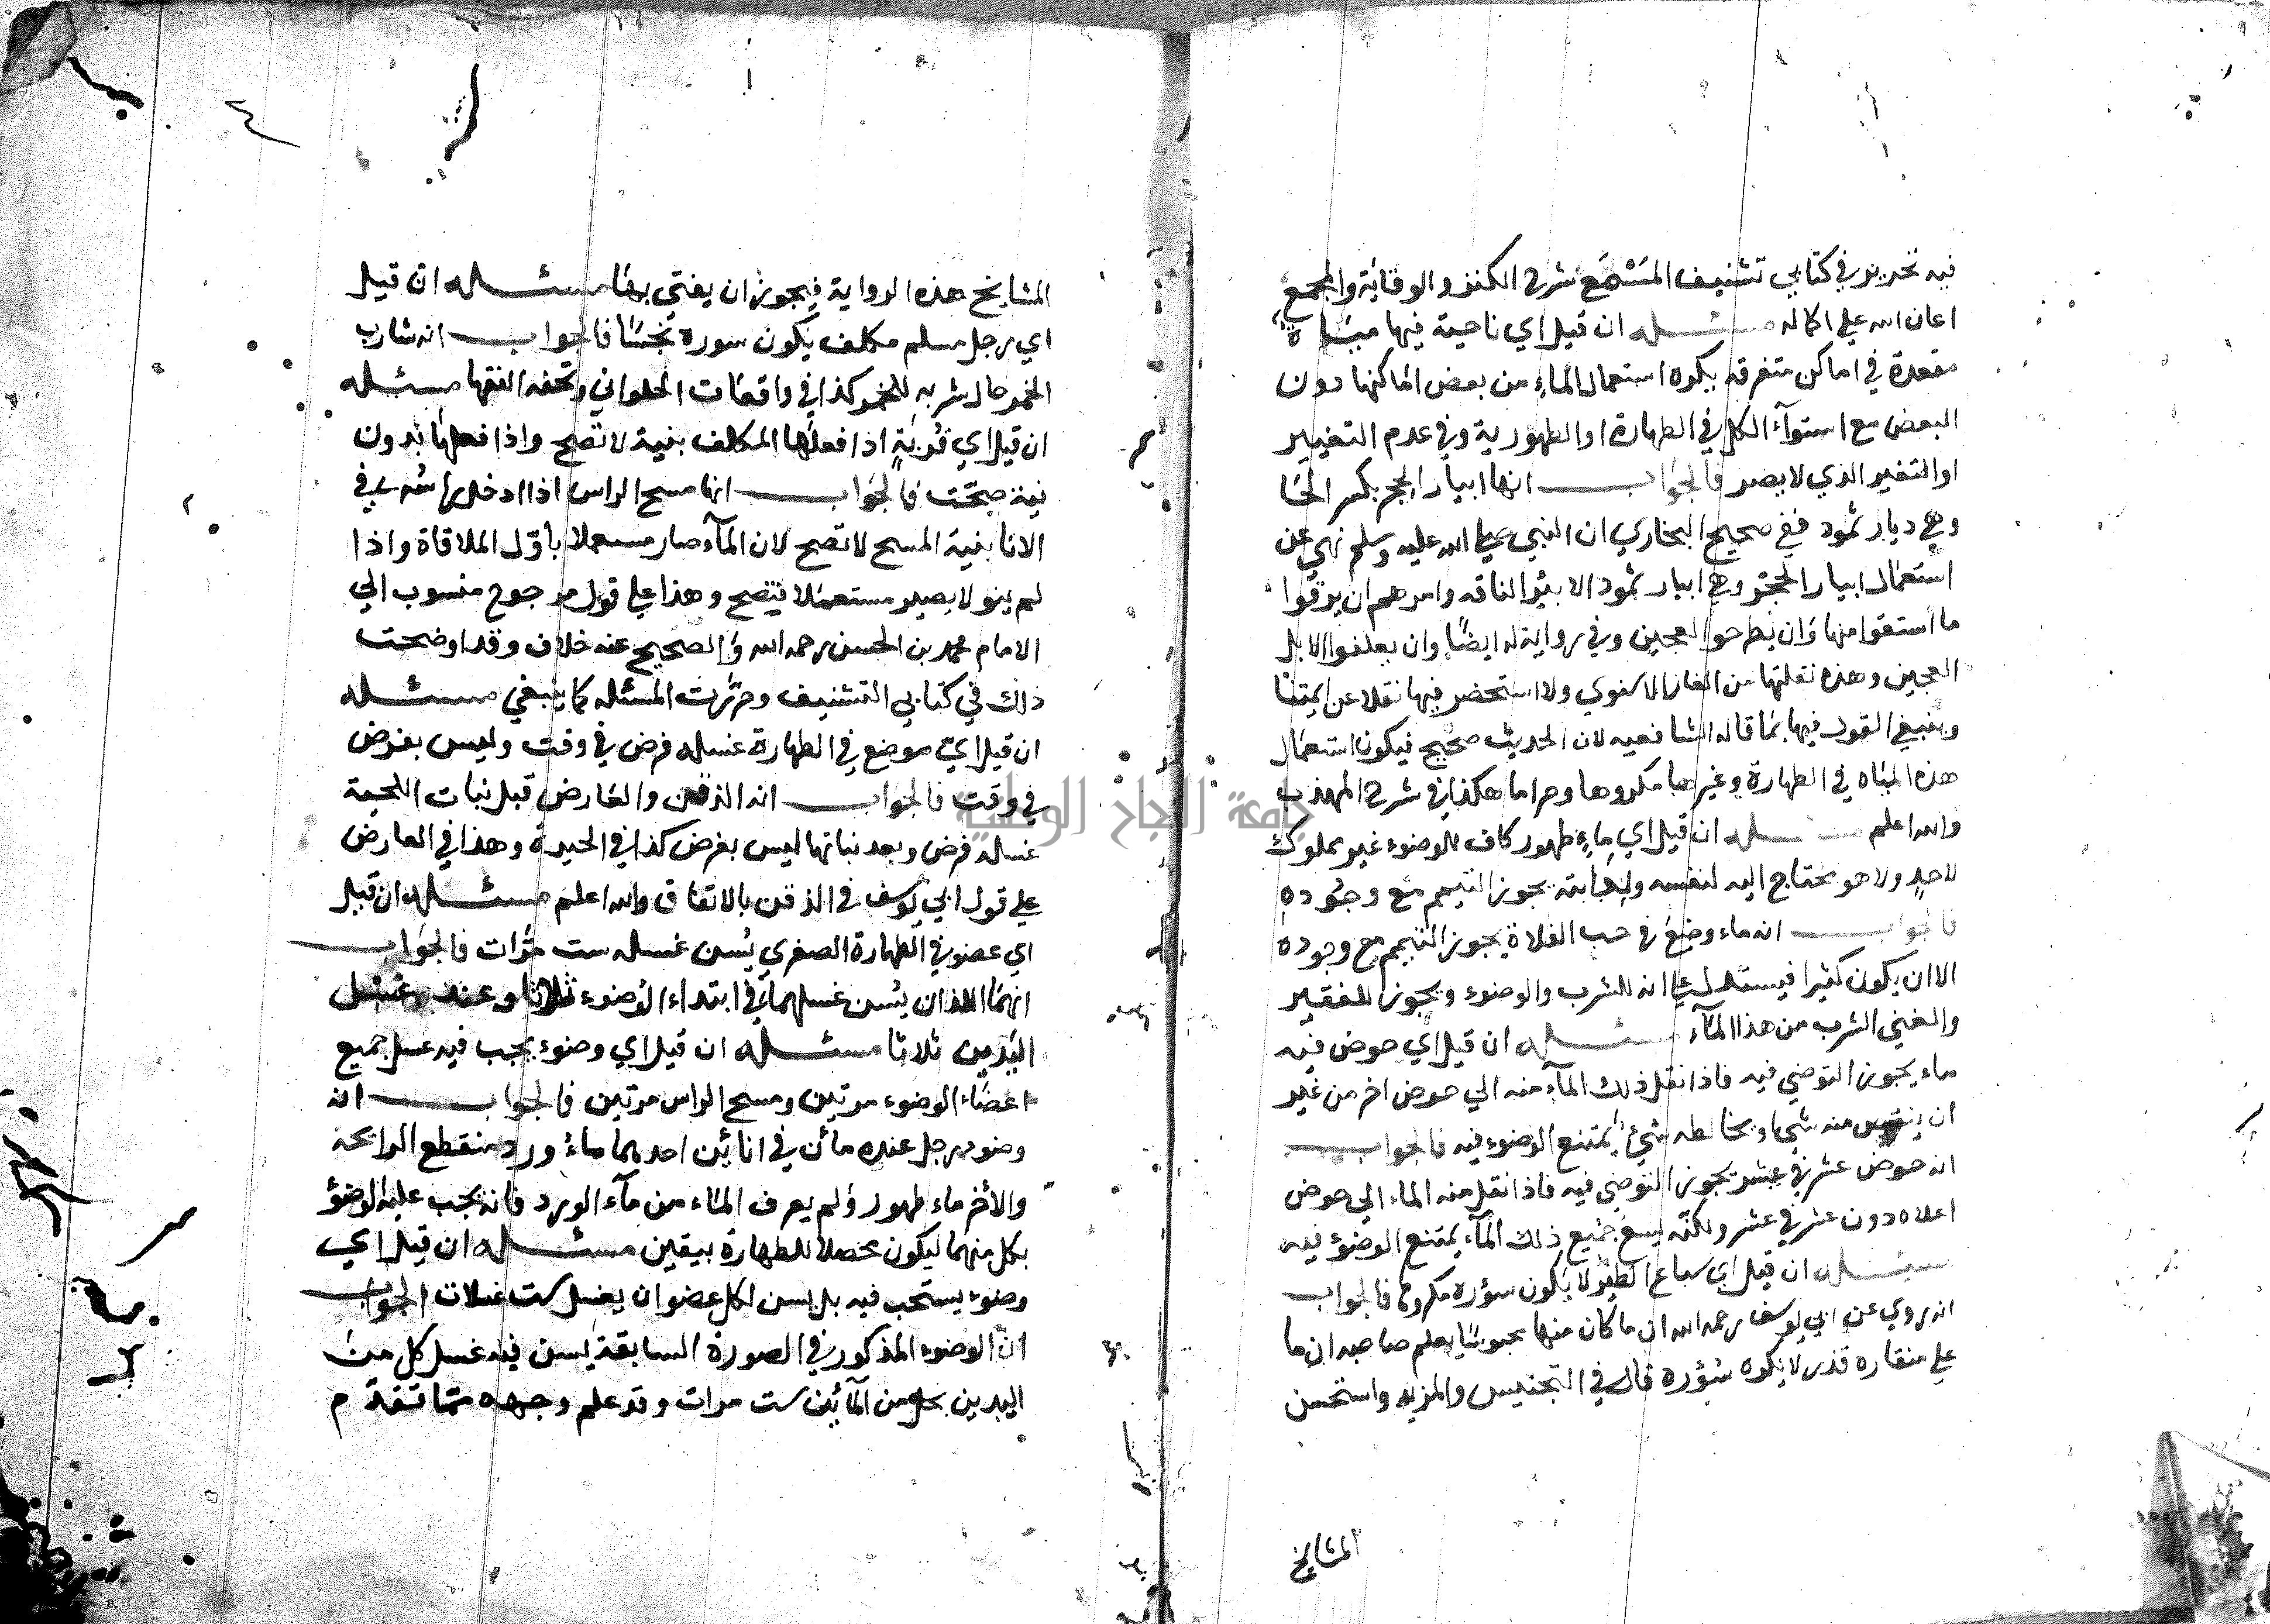 فيه تحرير في كتابي تشنيف المسمع شرح الكنز والوقاية والمجمع
اعان الله علي اكماله مسئله ان قيل اي ناحية فيها مياه
متعددة في اماكن متفرقه يكره استعمال الماء من بعض اماكنها دون
البعض مع استوآء الكل في الطهارة او الطهورية وفي عدم التغيير
او التغير الذي لا يضر فالجواب انها ابيار الحجر بكسر الحا
وهي ديار ثمود ففي صحيح البخاري ان النبي صلي الله عليه وسلم نهي عن
استعمال ابيار الحجر وهي ابيار ثمود الا بئر الناقه وامرهم ان يرقوا
ما استقوا منها وان يطرحوا العجين وفي رواية له ايضا وان يعلفوا الابل
العجين وهذه نقلتها من الغاز الاسنوي ولا استحضر فيها نقلا عن ايمتنا
وينبغي القول فيها بما قاله الشافعيه لان الحديث صحيح فيكون استعمال
هذه المياه في الطهارة وغيرها مكروها وحراما هكذا في شرح المهذب
والله اعلم مسئله ان قيل اي ماء طهور كاف للوضوء غير مملوك
لاحد ولا هو محتاج اليه لنفسه ولدابته يجوز التيمم مع وجوده
فالجواب انه ماء وضع في حب الفلاة يجوز التيمم مع وجوده
الا ان يكون كثيرا فيستدل علي انه للشرب والوضوء ويجوز للفقير
والغني الشرب من هذا المآء مسئله ان قيل اي حوض فيه
ماء يجوز التوضي فيه فاذا نقل ذلك المآء منه الي حوض اخر من غير
ان ينقص منه شيء او يخالطه شيء يمتنع الوضوء فيه فالجواب
انه حوض عشر في عشر يجوز التوضي فيه فاذا نقل منه الماء الي حوض
اعلاه دون عشر في عشر ولكنه يسع جميع ذلك المآء يمتنع الوضوء فيه
مسئله ان قيل اي سباع الطير لا يكون سؤره مكروها فالجواب
انه روي عن ابي يوسف رحمه الله ان ما كان منها محبوسا يعلم صاحبه ان ما
علي منقاره قذر لا يكره سؤره قال في التجنيس والمزيد واستحسن
المشايخ
المشايخ هذه الرواية فيجوز ان يفتي بها مسئله ان قيل
اي رجل مسلم مكلف يكون سوره نجسا فالجواب انه شارب
الخمر حال شربه للخمر كذا في واقعات الحلواني وتحفه الفقها مسئله
ان قيل اي قربة اذا فعلها المكلف بنية لا تصح واذا فعلها بدون
نية صحت فالجواب انها مسح الراس اذا ادخل شعره في
الانا بنية المسح لا تصح لان المآء صار مستعملا باول الملاقاة واذا
لم ينو لا يصير مستعملا فتصح وهذا علي قول مرجوح منسوب الي
الامام محمد بن الحسن رحمه الله والصحيح عنه خلاف وقد اوضحت
ذلك في كتابي التشنيف وحررت المسئله كما ينبغي مسئله
ان قيل اي موضع في الطهارة غسله فرض في وقت وليس بفرض
في وقت فالجواب انه الذقن والعارض قبل نبات اللحية
غسله فرض وبعد نباتها ليس بفرض كذا في الحيرة وهذا في العارض
علي قول ابي يوسف في الذقن بالاتفاق والله اعلم مسئله ان قيل
اي عضو في الطهارة الصغري يسن غسله ست مرات فالجواب
انهما اليدان يسن غسلهما في ابتداء الوضوء ثلاثا وعند غسل
اليدين ثلاثا مسئله ان قيل اي وضوء يجب فيه غسل جميع
اعضاء الوضوء مرتين ومسح الراس مرتين فالجواب انه
وضوء رجل عنده مائن في انائين احدهما ماء ورد منقطع الرايحة
والاخر ماء طهور ولم يعرف الماء من مآء الورد فانه يجب عليه الوضؤ
بكل منهما ليكون محصلا للطهارة بيقين مسئله ان قيل اي
وضوء يستحب فيه بل يسن لكل عضو ان يغسل ست غسلات الجواب
ان الوضوء المذكور في الصورة السابقة يسن فيه غسل كل من
اليدين بكل من المآئين ست مرات وقد علم وجهه مما تقدم
جامعة النجاح الوطنية